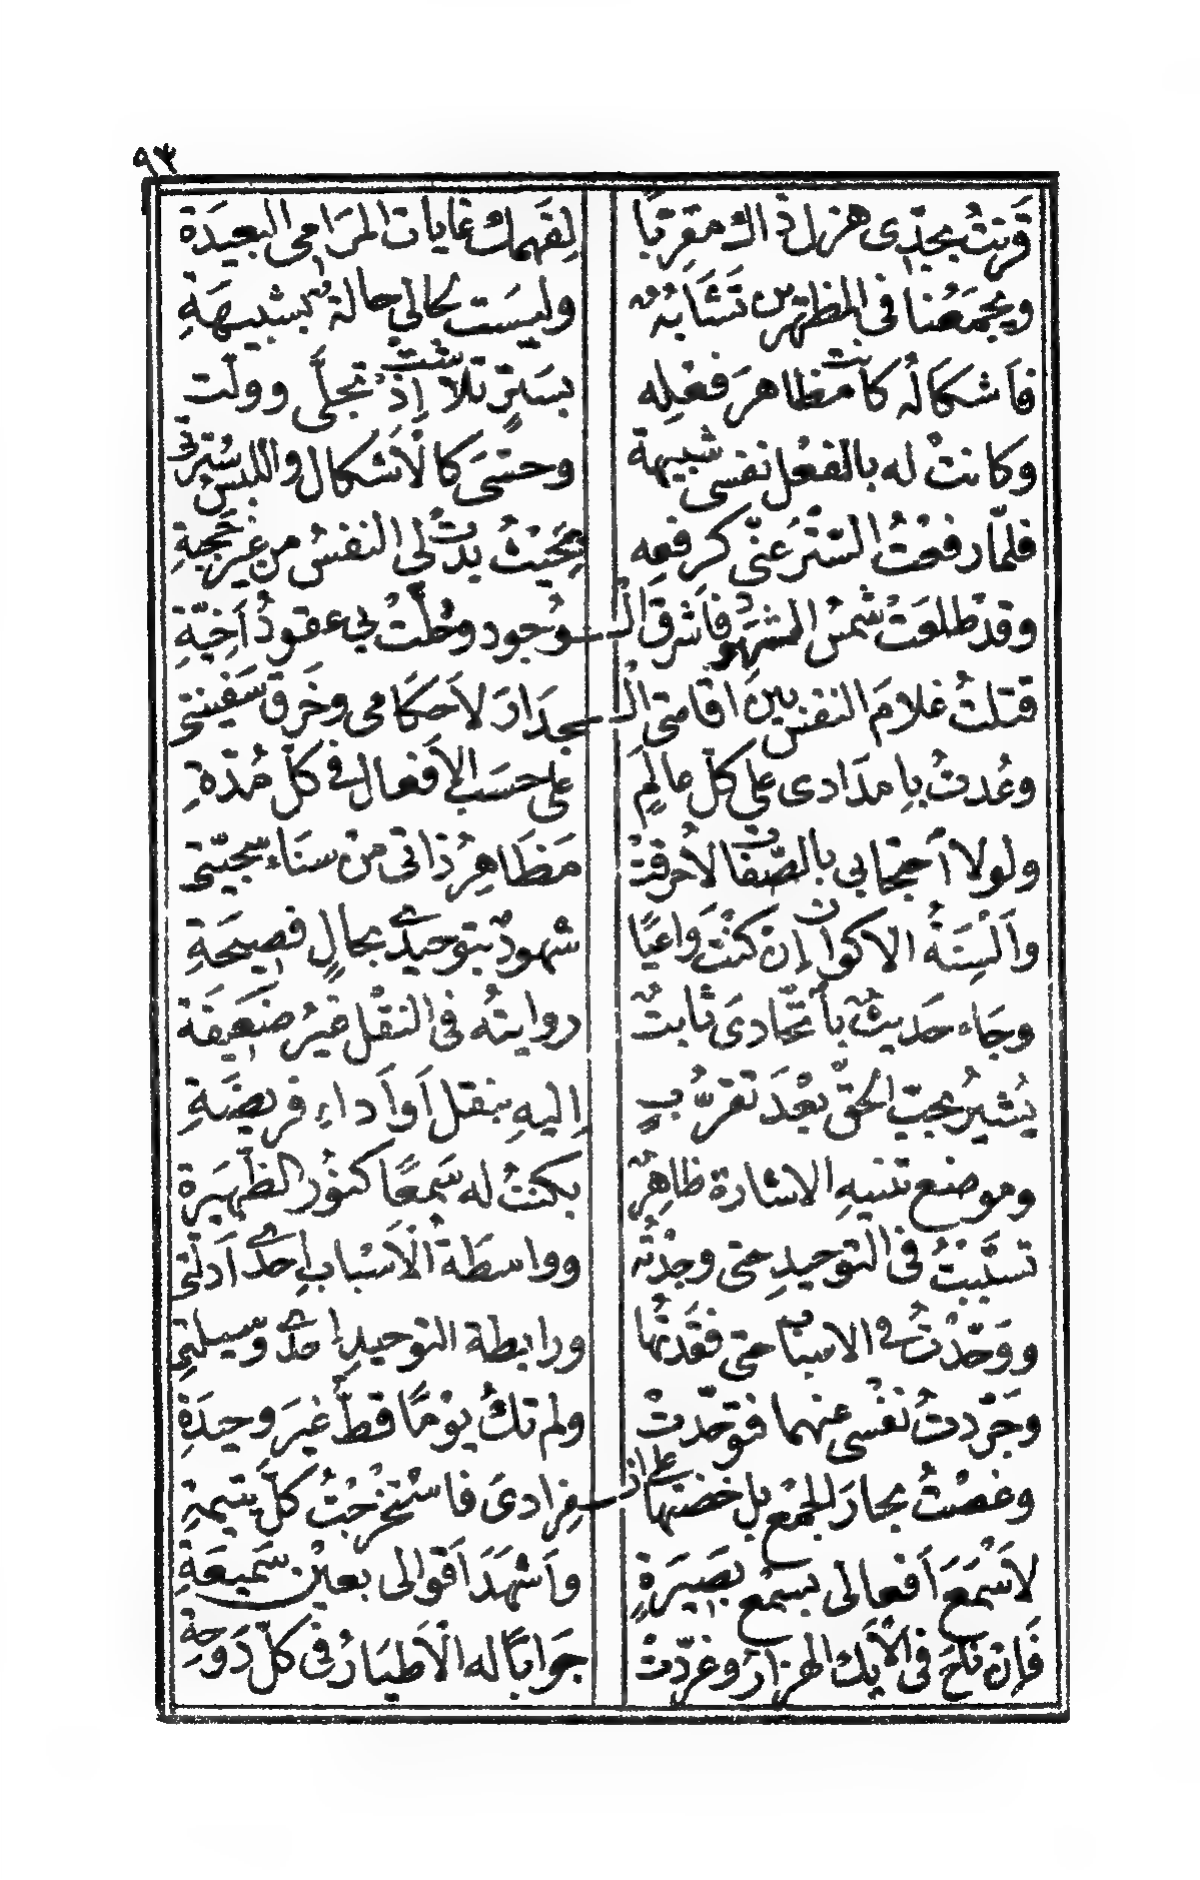 ٩٣
قرنت بجدّى هزل ذاك مقرّبًا لفهمك غايات المرامى البعيدة
ويجمعنا فى المظهرين تشابهٌ وليست لحالي حالة بشبيهة
فأشكاله كانت مظاهر فعله بسترٍ تلاشت إذ تجلّى وولّت
وكانت له بالفعل نفسى شبيهة وحسّى كالأشكال واللبس سترتى
فلمّا رفعت السّتر عنّى كرفعه بحيث بدت لي النفس من غير حجبة
وقد طلعت شمس الشهود فأشرق الـوجود وحلّت بي عقود أخيّة
قتلت غلام النفس بين اقامتى الـجدار لاحكامى وخرق سفينتى
وعدت بامدادى على كلّ عالم على حسب الأفعال فى كلّ مدّة
ولولا أحتجابي بالصّفات لأحرقت مظاهر ذاتى من سناء سجيّتى
وألسنة الاكوان إن كنت واعيًا شهود بتوحيدى بحالٍ فصيحة
وجاء حديث بأتّحادى ثابت روايته فى النقل غير ضعيفة
يشير بحبّ الحقّ بعد تقرّبٍ إليه بنفل أو أداءِ فريضة
وموضع تنبيه الاشارة ظاهر بكنت له سمعًا كنور الظّهيرة
تسبّبت فى التوحيد حتى وجدته وواسطة الأسباب إحدى أدلّتى
ووحّدت فى الاسباب حتى فقدتها ورابطة التوحيد إحدى وسيلتى
وجرّدت نفسى عنهما فتوحّدت ولم تك يومًا قطّ غير وحيدة
وغصت بحار الجمع بل خضتها على انـفرادى فاستخرجت كلّ يتيمة
لأسمع أفعالى بسمع بصيرةٍ وأشهد أقوالى بعين سميعة
فإن ناح فى الأيك الهزار وغرّدت جوابًا له الأطيار فى كلّ دوحة